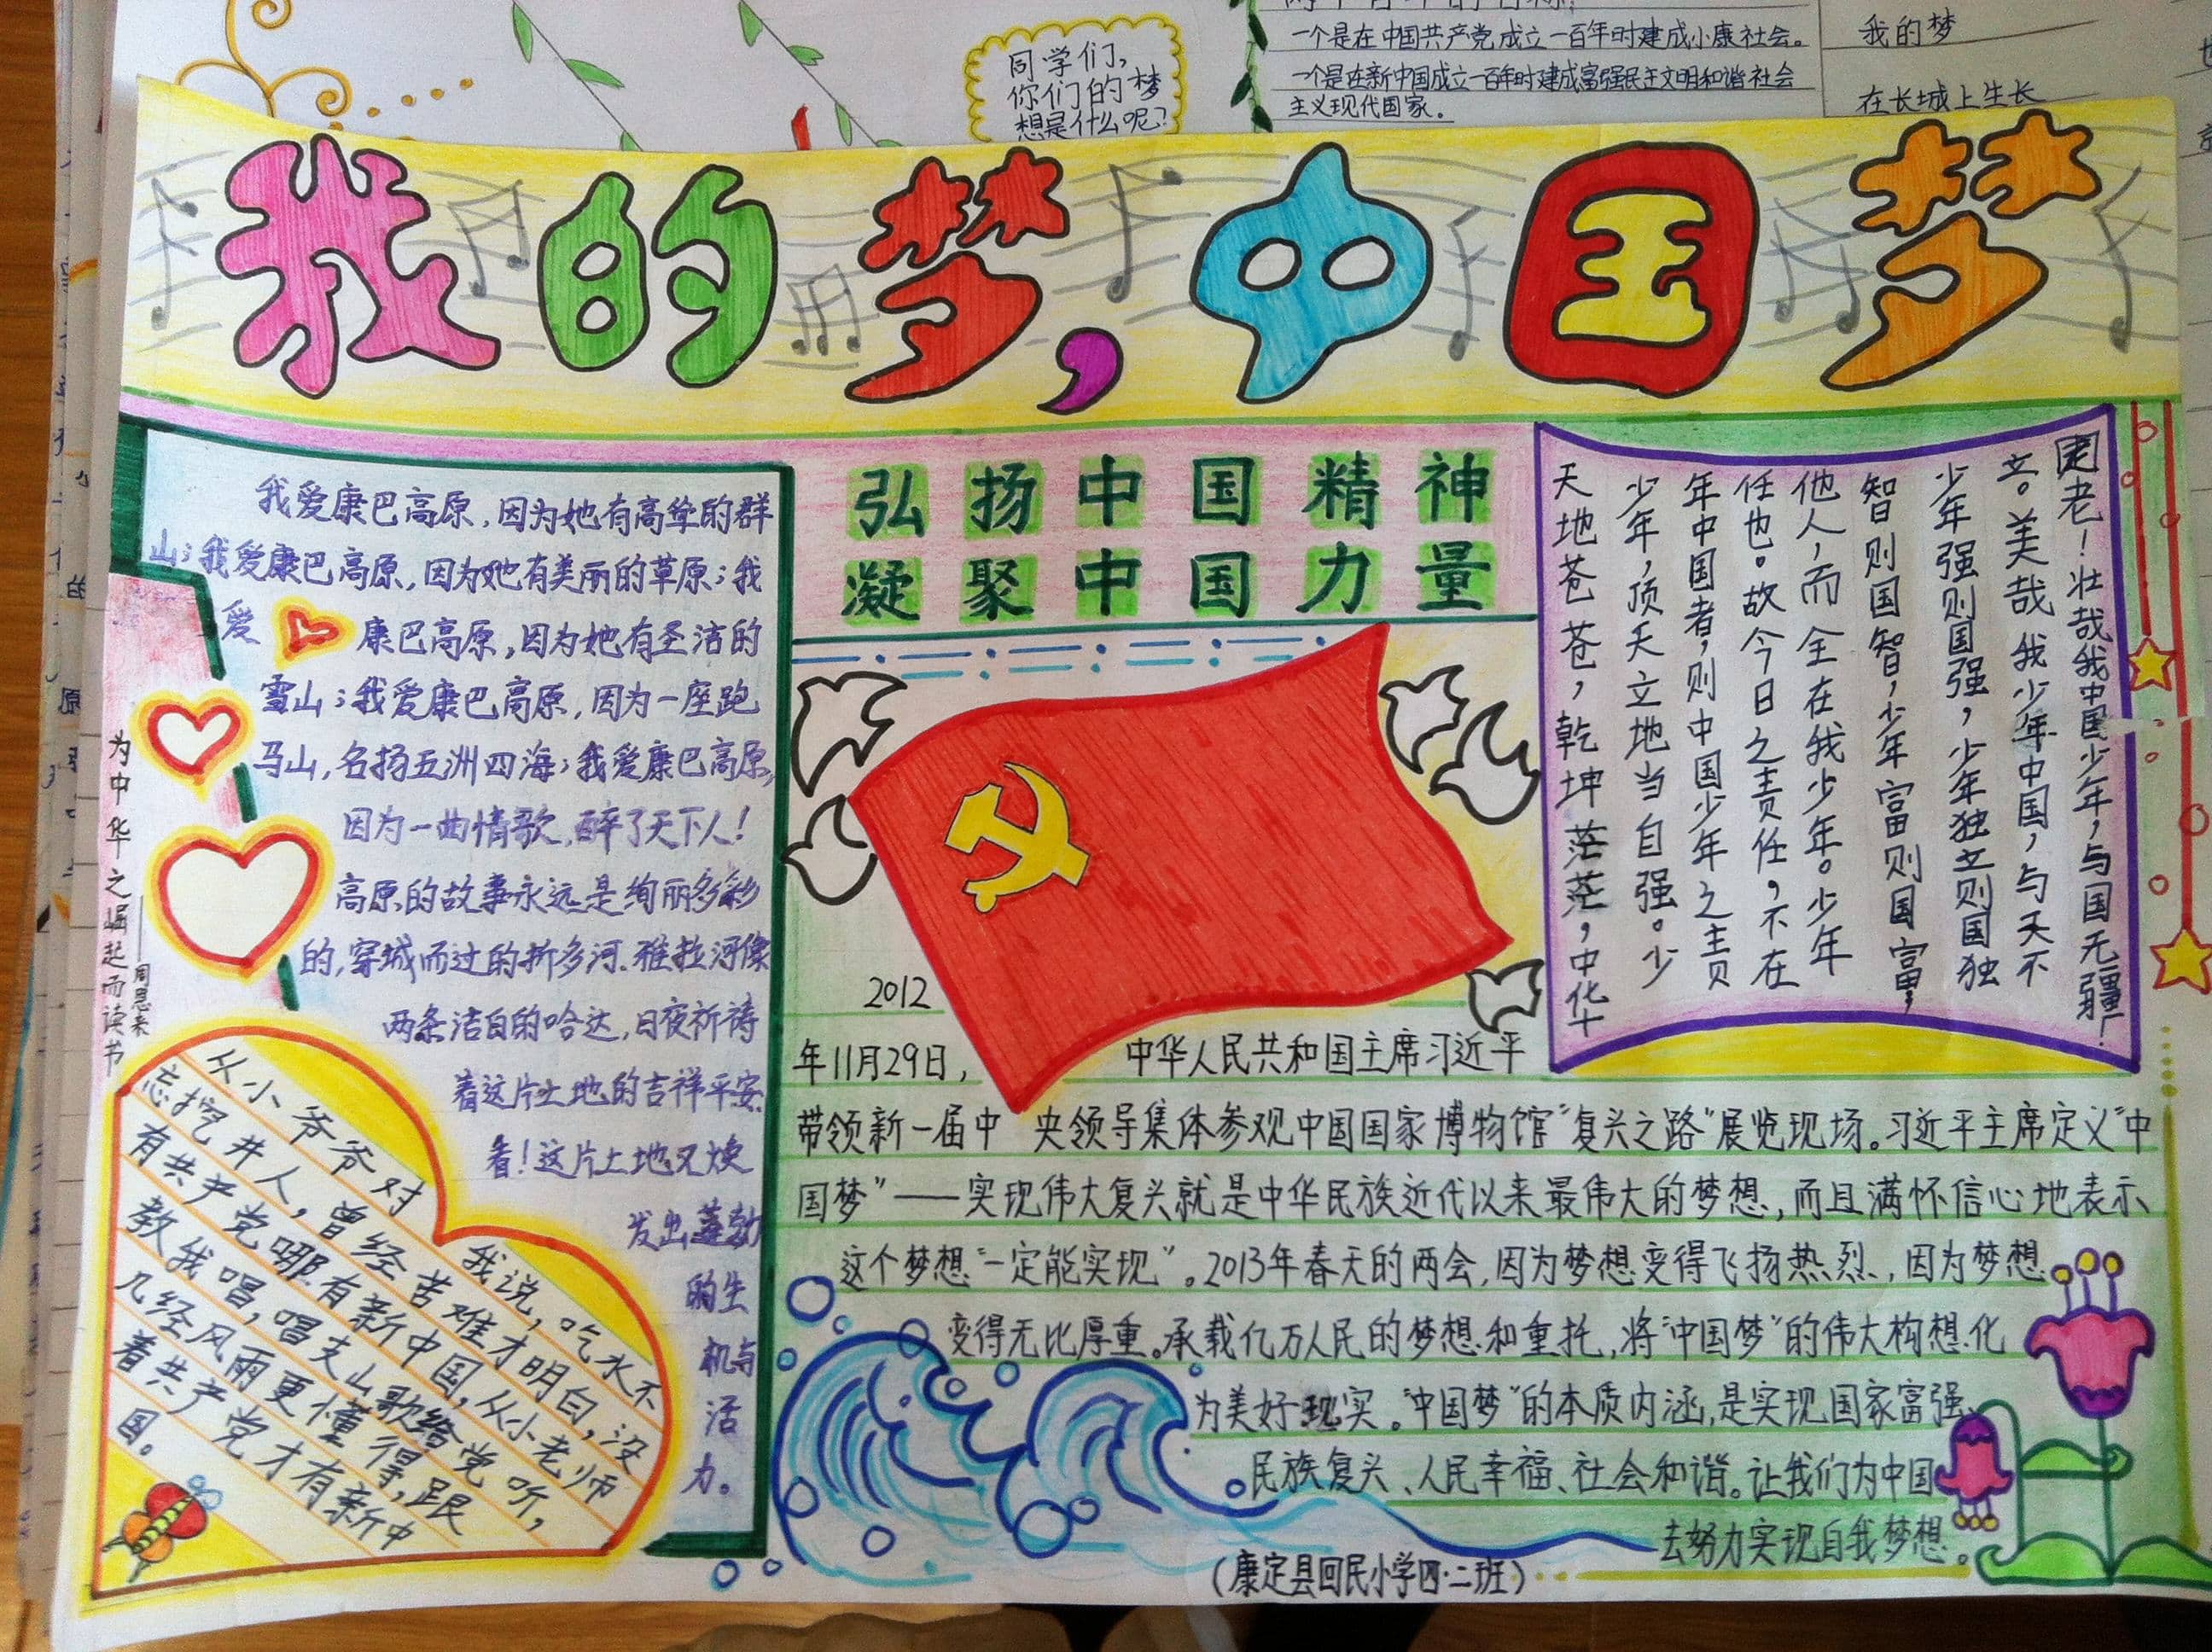 同学们，
你们的梦
想是什么呢？
一个是在中国共产党成立一百年时建成小康社会。
一个是在新中国成立一百年时建成富强民主文明和谐社会
主义现代国家。
我的梦
在长城上生长
我的梦，中国梦
我爱康巴高原，因为她有高耸的群
山；我爱康巴高原，因为她有美丽的草原；我
爱康巴高原，因为她有圣洁的
雪山；我爱康巴高原，因为一座跑
马山，名扬五洲四海；我爱康巴高原，
因为一曲情歌，醉了天下人！
高原的故事永远是绚丽多彩
的，穿城而过的折多河、雅拉河像
两条洁白的哈达，日夜祈祷
着这片土地的吉祥平安
看！这片土地又焕
发出蓬勃
的生
机与
活
力。
为中华之崛起而读书
——周恩来
从小爷爷对我说，吃水不
忘挖井人，曾经苦难才明白，没
有共产党哪有新中国，从小老师
教我唱，唱支山歌给党听，
几经风雨更懂得，跟
着共产党才有新中
国。
弘扬中国精神
凝聚中国力量
天地苍苍，乾坤茫茫，中华
少年，顶天立地当自强。少
年中国者，则中国少年之责
任也。故今日之责任，不在
他人，而全在我少年。少年
智则国智，少年富则国富，
少年强则国强，少年独立则国独
立。美哉我少年中国，与天不
老！壮哉我中国少年，与国无疆！
2012
年11月29日，中华人民共和国主席习近平
带领新一届中央领导集体参观中国国家博物馆“复兴之路”展览现场。习近平主席定义“中
国梦”——实现伟大复兴就是中华民族近代以来最伟大的梦想，而且满怀信心地表示
这个梦想“一定能实现”。2013年春天的两会，因为梦想变得飞扬热烈，因为梦想
变得无比厚重。承载亿万人民的梦想和重托，将“中国梦”的伟大构想化
为美好现实。“中国梦”的本质内涵，是实现国家富强、
民族复兴、人民幸福、社会和谐。让我们为中国
去努力实现自我梦想。
（康定县回民小学四·二班）